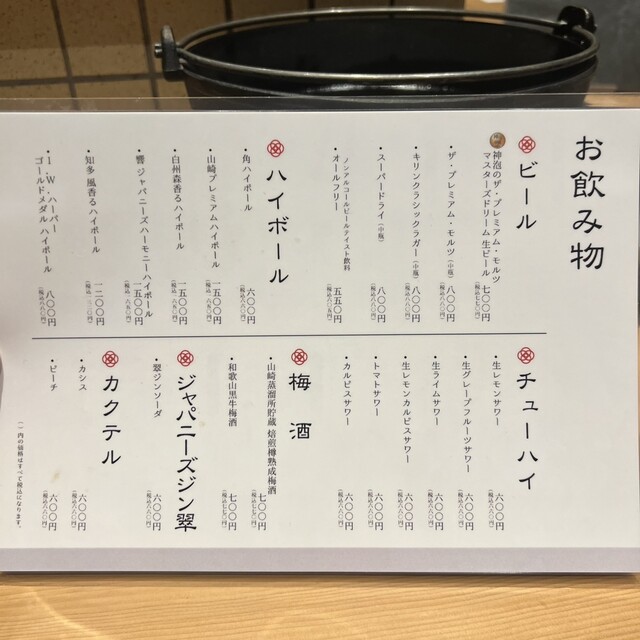 お飲み物
ビール
神泡のザ・プレミアム・モルツ
マスターズドリーム 生ビール 七〇〇円
(税込七七〇円)
・ザ・プレミアム・モルツ(中瓶) 八〇〇円
(税込八八〇円)
・キリンクラシックラガー(中瓶) 八〇〇円
(税込八八〇円)
・スーパードライ(中瓶) 八〇〇円
(税込八八〇円)
ノンアルコールビールテイスト飲料
・オールフリー 五五〇円
(税込六〇五円)
ハイボール
・角ハイボール 六〇〇円
(税込六六〇円)
・山崎プレミアムハイボール 一五〇〇円
(税込一六五〇円)
・白州森香るハイボール 一五〇〇円
(税込一六五〇円)
・響 ジャパニーズハーモニーハイボール 一五〇〇円
(税込一六五〇円)
・知多 風香るハイボール 一二〇〇円
(税込一三二〇円)
・I.W.ハーパー
ゴールドメダル ハイボール 八〇〇円
(税込八八〇円)
チューハイ
・生レモンサワー 六〇〇円
(税込六六〇円)
・生グレープフルーツサワー 六〇〇円
(税込六六〇円)
・生ライムサワー 六〇〇円
(税込六六〇円)
・生レモンカルピスサワー 六〇〇円
(税込六六〇円)
・トマトサワー 六〇〇円
(税込六六〇円)
・カルピスサワー 六〇〇円
(税込六六〇円)
梅酒
・山崎蒸溜所貯蔵 焙煎樽熟成梅酒 七〇〇円
(税込七七〇円)
・和歌山黒牛梅酒 七〇〇円
(税込七七〇円)
ジャパニーズジン翠
・翠ジンソーダ 六〇〇円
(税込六六〇円)
カクテル
・カシス 六〇〇円
(税込六六〇円)
・ピーチ 六〇〇円
(税込六六〇円)
( )内の価格はすべて税込になります。